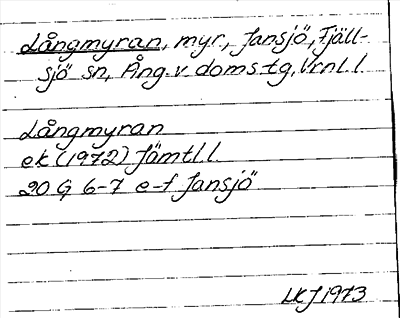 Långmyran, myr, Jansjö, Fjäll-
sjö sn, Ång. v. doms.tg, Vrnl. l.
Långmyran
ek (1972) Jämtl. l.
20 G 6-7 e-f Jansjö
LKJ 1973